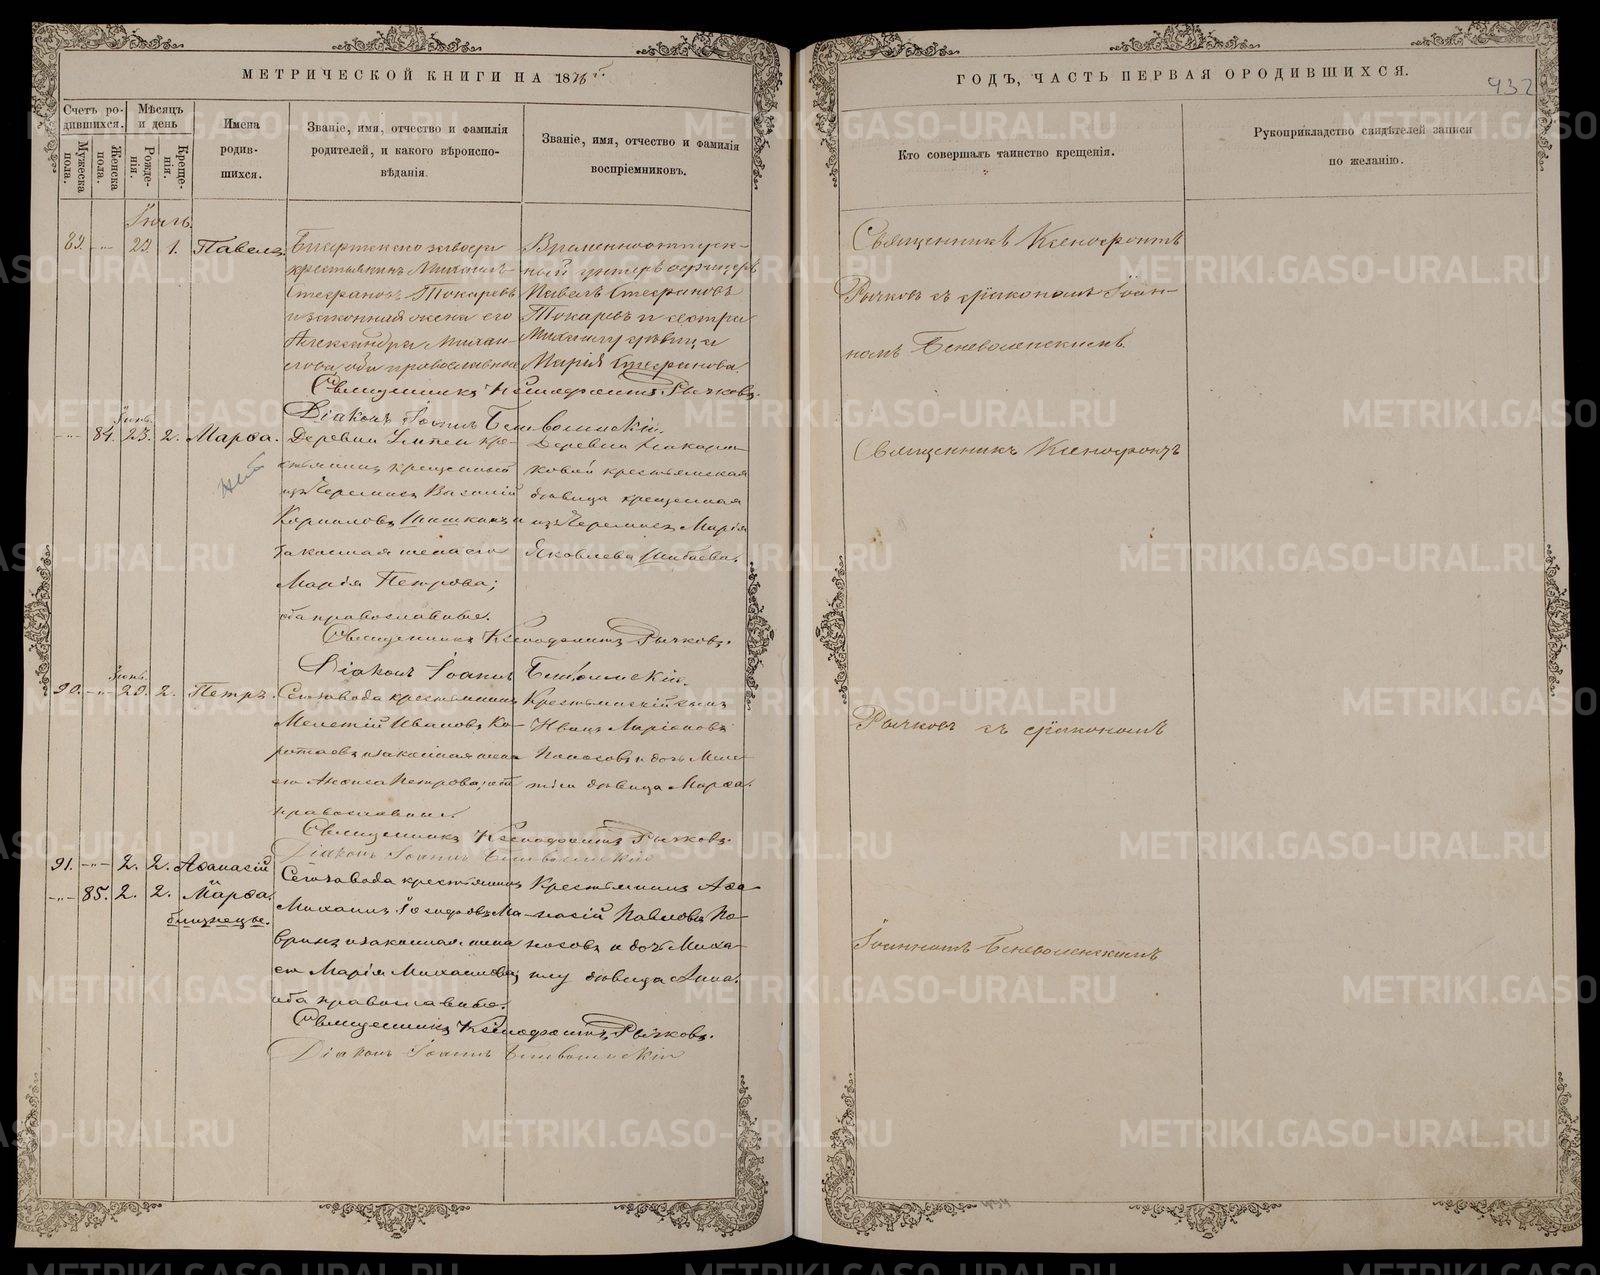 МЕТРИЧЕСКОЙ КНИГИ НА 1876 г.
Счетъ ро-
дившихся.
Мѣсяцъ
и день
Мужеска
пола.
Женска
пола.
Рожде-
нія.
Креще-
нія.
Имена
родив-
шихся.
Званіе, имя, отчество и фамилія
родителей, и какого вѣроиспо-
вѣданія.
Званіе, имя, отчество и фамилія
воспріемниковъ.
Іюль.
1. Павелъ.
завода
крестьянинъ Михаилъ
Стефановъ Токаревъ
и законная жена его
Александра
оба православные
Временноотпуск-
ный унтеръ офицеръ
Павелъ Стефановъ
Токаревъ и сестра
Михаилу дѣвица
Марія Стефанова
Священникъ Ксенофонтъ Рычковъ.
Діаконъ Іоаннъ Беневоленскій.
Іюнь
84. 23. 2. Марѳа.
Деревни кре-
стьянинъ крещеный
изъ Черемисъ Василій
Корниловъ и
законная жена его
Марія Петрова;
оба православные.
Деревни
ковой крестьянская
дѣвица крещенная
изъ Черемисъ Марія
Яковлева
Священникъ Ксенофонтъ Рычковъ.
Діаконъ Іоаннъ
Іюнь
90. 2. Петръ.
Сегозавода крестьянинъ
Мелетій Ивановъ Ко-
ротаевъ и законная жена
его Петрова; оба
православные.
Крестьянскій сынъ
Иванъ Ларіоновъ
и дочь Меле-
тія дѣвица Марѳа.
Священникъ Ксенофонтъ Рычковъ.
Діаконъ Іоаннъ Беневоленскій
91. 2. 2. Аѳанасій
85. 2. 2. Марѳа.
близнецы.
Сегозавода крестьянинъ
Михаилъ
и законная жена
его Марія Михаилова;
оба православные.
Крестьянинъ Аѳа-
насій Павловъ По-
носовъ и дочь Миха-
илу дѣвица Анна.
Священникъ Ксенофонтъ Рычковъ.
Діаконъ Іоаннъ Беневоленскій
ГОДЪ, ЧАСТЬ ПЕРВАЯ О РОДИВШИХСЯ.
432
Кто совершалъ таинство крещенія.
Рукоприкладство свидѣтелей записи
по желанію.
Священникъ Ксенофонтъ
Рычковъ съ діакономъ Іоан-
номъ Беневоленскимъ
Священникъ Ксенофонтъ
Рычковъ съ діакономъ
Іоанномъ Беневоленскимъ
METRIKI.GASO-URAL.RU